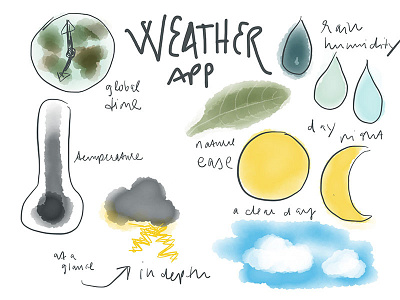 WEATHER
APP
rain
humidity
global
time
day night
nature
ease
temperature
a clear day
at a
glance
in depth